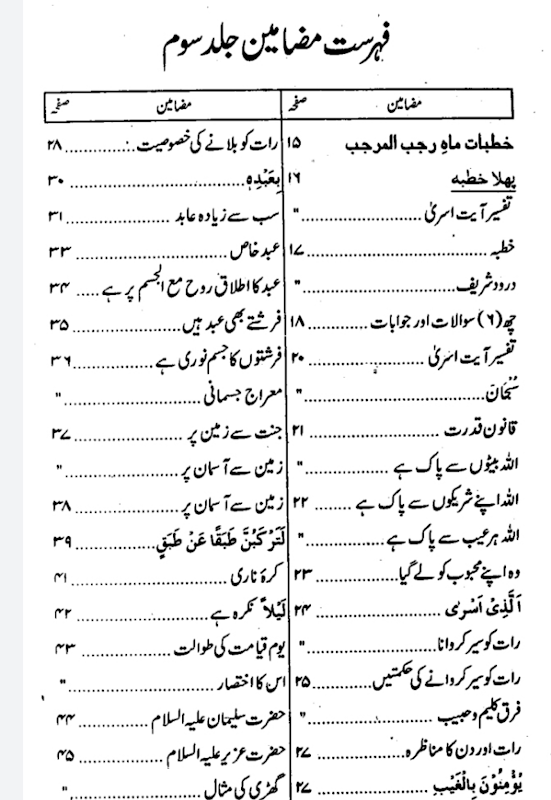 فہرست مضامین جلد سوم
مضامین صفحہ
خطبات ماہِ رجب المرجب ۱۵
پہلا خطبہ ۱۶
تفسیر آیت اسریٰ .................... "
خطبہ .................... ۱۷
درود شریف .................... "
چھ (۶) سوالات اور جوابات ............ ۱۸
تفسیر آیت اسریٰ .................... ۲۰
سُبْحَانَ .................... "
قانون قدرت .................... ۲۱
اللہ بیٹوں سے پاک ہے .................... "
اللہ اپنے شریکوں سے پاک ہے ........ ۲۲
اللہ ہر عیب سے پاک ہے .............. "
وہ اپنے محبوب کو لے گیا .................... ۲۳
اَلَّذِیْ اَسْرٰی .................... ۲۴
رات کو سیر کروانا .................... "
رات کو سیر کروانے کی حکمتیں .......... ۲۵
فرق کلیم و حبیب .................... "
رات اور دن کا مناظرہ .................... ۲۷
یُؤْمِنُوْنَ بِالْغَیْبِ .................... ۲۷
مضامین صفحہ
رات کو بلانے کی خصوصیت .............. ۲۸
بِعَبْدِہٖ .................... ۳۰
سب سے زیادہ عابد .................... ۳۱
عبد خاص .................... ۳۳
عبد کا اطلاق روح مع الجسم پر ہے ..... ۳۴
فرشتے بھی عبد ہیں .................... ۳۵
فرشتوں کا جسم نوری ہے .............. ۳۶
معراج جسمانی .................... "
جنت سے زمین پر .................... ۳۷
زمین سے آسمان پر .................... "
زمین سے آسمان پر .................... ۳۸
لَتَرْکَبُنَّ طَبَقًا عَنْ طَبَقٍ .............. ۳۹
کرۂ ناری .................... ۴۱
لَیْلاً نکرہ ہے .................... ۴۲
یوم قیامت کی طوالت .............. ۴۳
اس کا اختصار .................... "
حضرت سلیمان علیہ السلام .............. ۴۴
حضرت عزیر علیہ السلام .............. ۴۵
گھڑی کی مثال .................... "